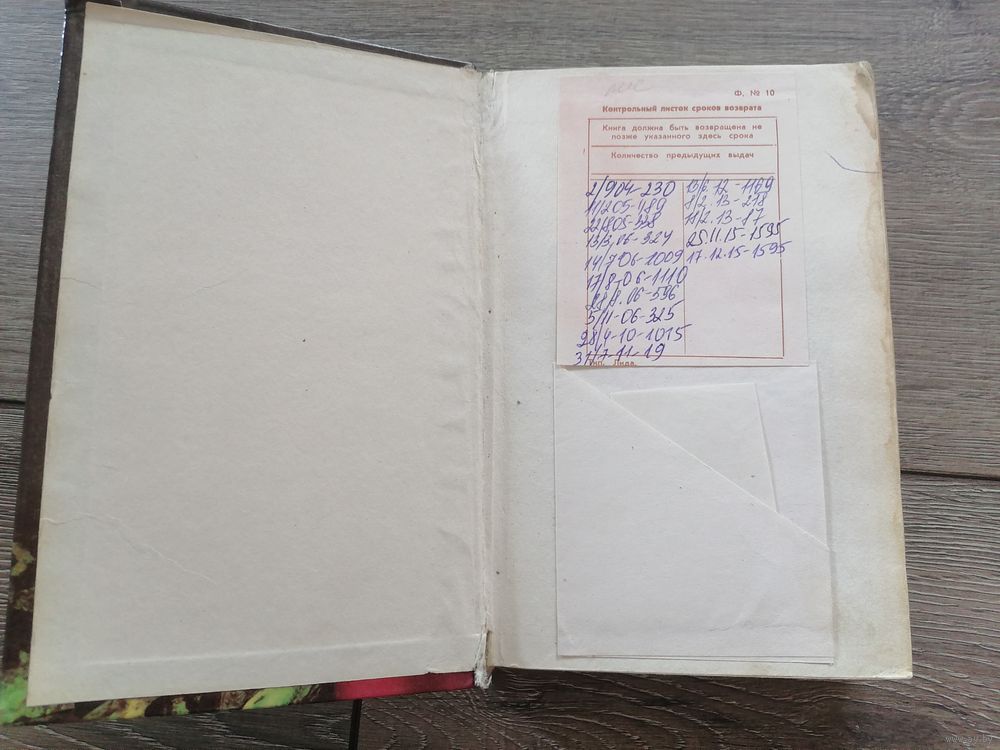 Ф. № 10
Контрольный листок сроков возврата
Книга должна быть возвращена не
позже указанного здесь срока
Количество предыдущих выдач
2/904-230
11/205-1189
22/805-338
13/3.06-324
14/706-1009
17/8-06-1110
28/8.06-596
5/11-06-325
28/4-10-1015
31/7-11-19
13/2.12-1169
8/2.13-218
11/2.13-87
25.11.15-1595
17.12.15-1595
Тип. Лида.